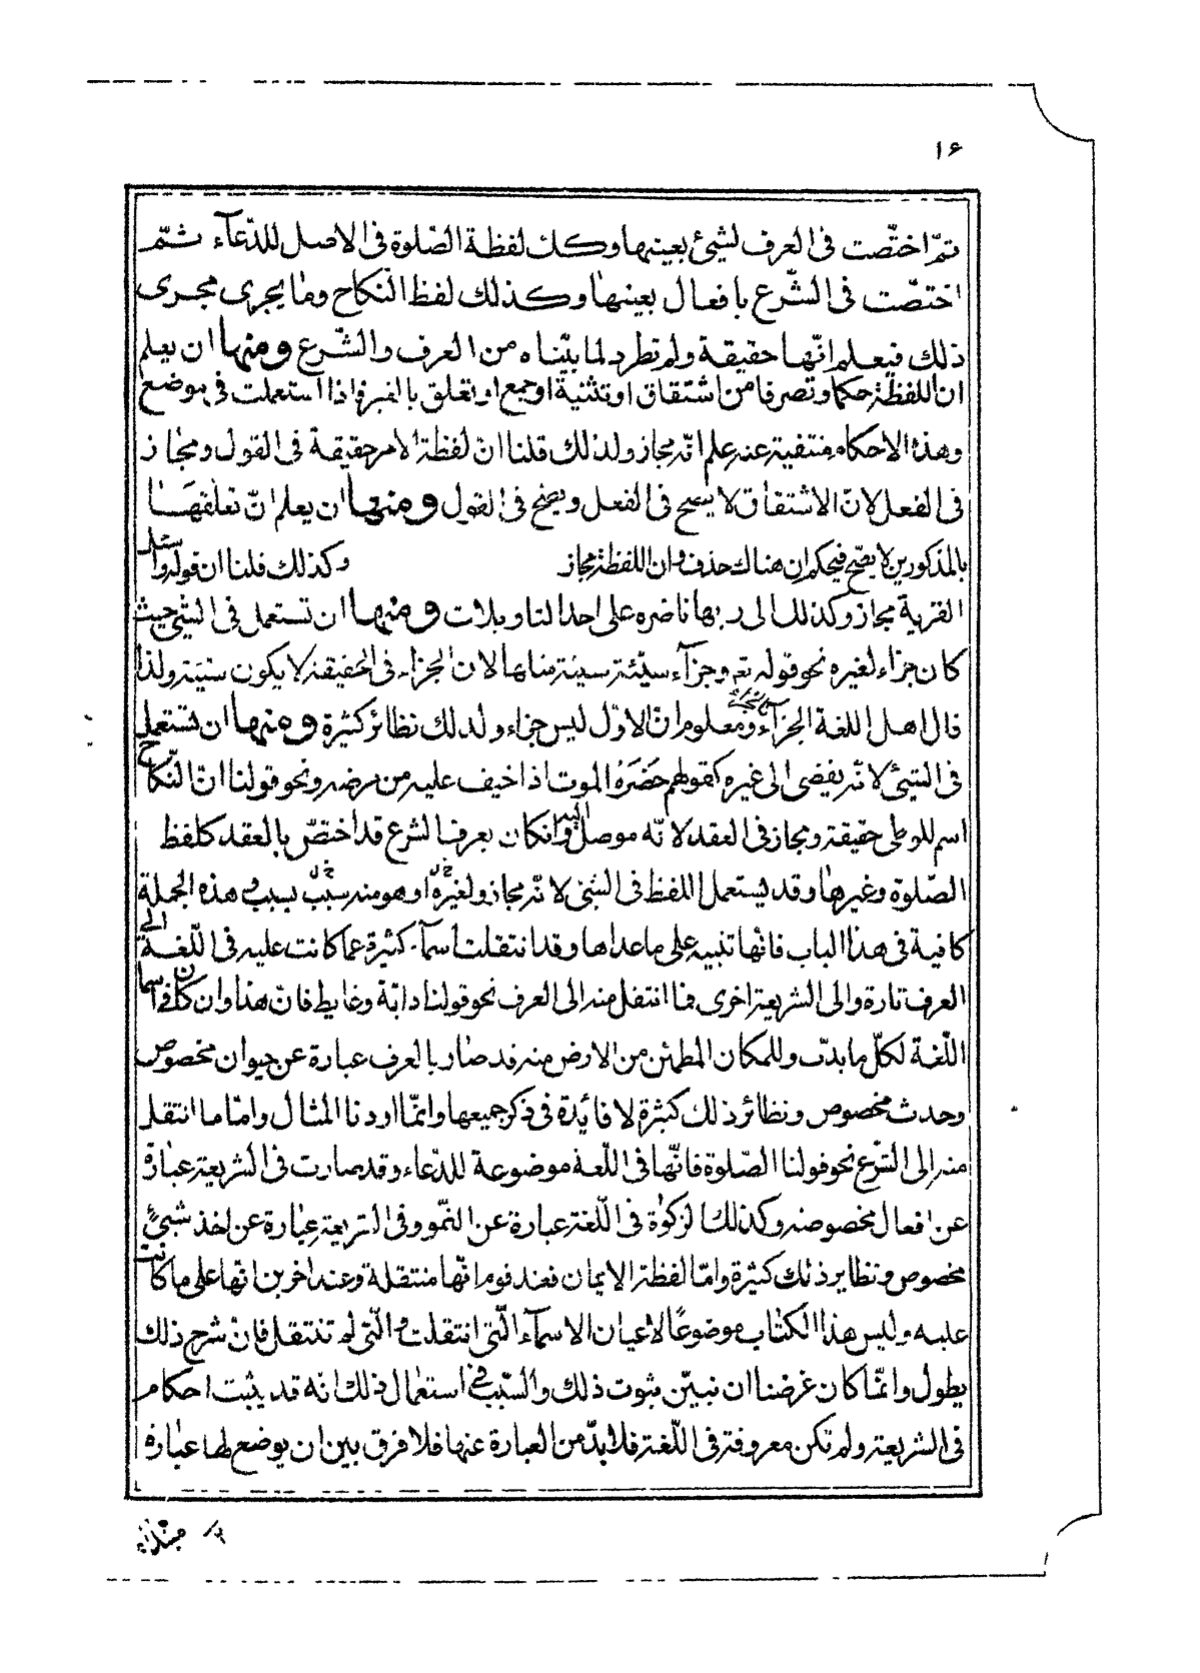 ۱۶
ثمّ اختصّت فى العرف لشيئ بعينها وكك لفظة الصّلوة فى الاصل للدّعآء ثمّ
اختصّت فى الشّرع بافعال بعينها وكذلك لفظ النّكاح وما يجرى مجرى
ذلك فيعلم انّها حقيقة ولم تطرد لما بيّناه من العرف والشّرع ومنها ان يعلم
ان اللفظة حكما وتصرفا من اشتقاق او تثنية او جمع او تعلق بالغير فاذا استعملت فى موضع
وهذه الاحكام منتفية عنه علم انّه مجاز ولذلك قلنا انّ لفظة الامر حقيقة فى القول ومجاز
فى الفعل لانّ الاشتقاق لا يصح فى الفعل ويصح فى القول ومنها ان يعلم انّ تعلقها
بالمذكورين لا يصّح فيحكم ان هناك حذف وان اللفظة مجاز وكذلك قلنا ان قوله واسئل
القرية مجاز وكذلك الى ربها ناضره على احد التاويلات ومنها ان تستعمل فى الشئ حيث
كان جزاء لغيره نحو قوله تع وجزآء سيّئة سيئة مثلها لان الجزاء فى الحقيقة لا يكون سيئة ولذا
قال اهل اللغة الجزآء ومعلوم انّ الاوّل ليس جزاء ولذلك نظائر كثيرة ومنها ان تستعمل
فى الشئ لانّه يفضى الى غيره كقولهم حَضَرَهُ الموت اذا خيف عليه من مرضه ونحو قولنا انّ النّكاح
اسم للوطى حقيقة ومجاز فى العقد لانّه موصل اليه وانكان بعرف الشرع قد اختصّ بالعقد كلفظ
الصّلوة وغيرها وقد يستعمل اللفظ فى الشئ لانّه مجاز ولغيره او هو منه سبب بسبب وهذه الجملة
كافية فى هذا الباب فانّها تنبيه على ما عداها وقد انتقلت أسمآء كثيرة عما كانت عليه فى اللّغة الى
العرف تارة والى الشريعة اخرى فما انتقل منه الى العرف نحو قولنا دابّة وغايط فانّ هذا وان كان اسما فى
اللّغة لكلّ ما يدبّ وللمكان المطمئن من الارض منه فقد صار بالعرف عبارة عن حيوان مخصوص
وحدث مخصوص ونظائر ذلك كثيرة لا فايدة فى ذكر جميعها وانّما اردنا المثال وامّا ما انتقل
منه الى الشّرع نحو قولنا الصّلوة فانّها فى اللّغة موضوعة للدّعاء وقد صارت فى الشريعة عبارة
عن افعال مخصوصه وكذلك الزكوة فى اللّغة عبارة عن النّمو وفى الشريعة عبارة عن اخذ شيئ
مخصوص ونظاير ذلك كثيرة وامّا لفظة الايمان فعند قوم انّها منتقلة وعند اخرين انّها على ما كانت
عليه وليس هذا الكتاب موضوعًا لاعيان الاسمآء الّتى انتقلت والّتى لم تنتقل فانّ شرح ذلك
يطول وانّما كان غرضنا ان نبيّن ثبوت ذلك والسّبب فى استعمال ذلك انّه قد يثبت احكام
فى الشريعة ولم تكن معروفة فى اللّغة فلا بدّ من العبارة عنها فلا فرق بين ان يوضع لها عبارة